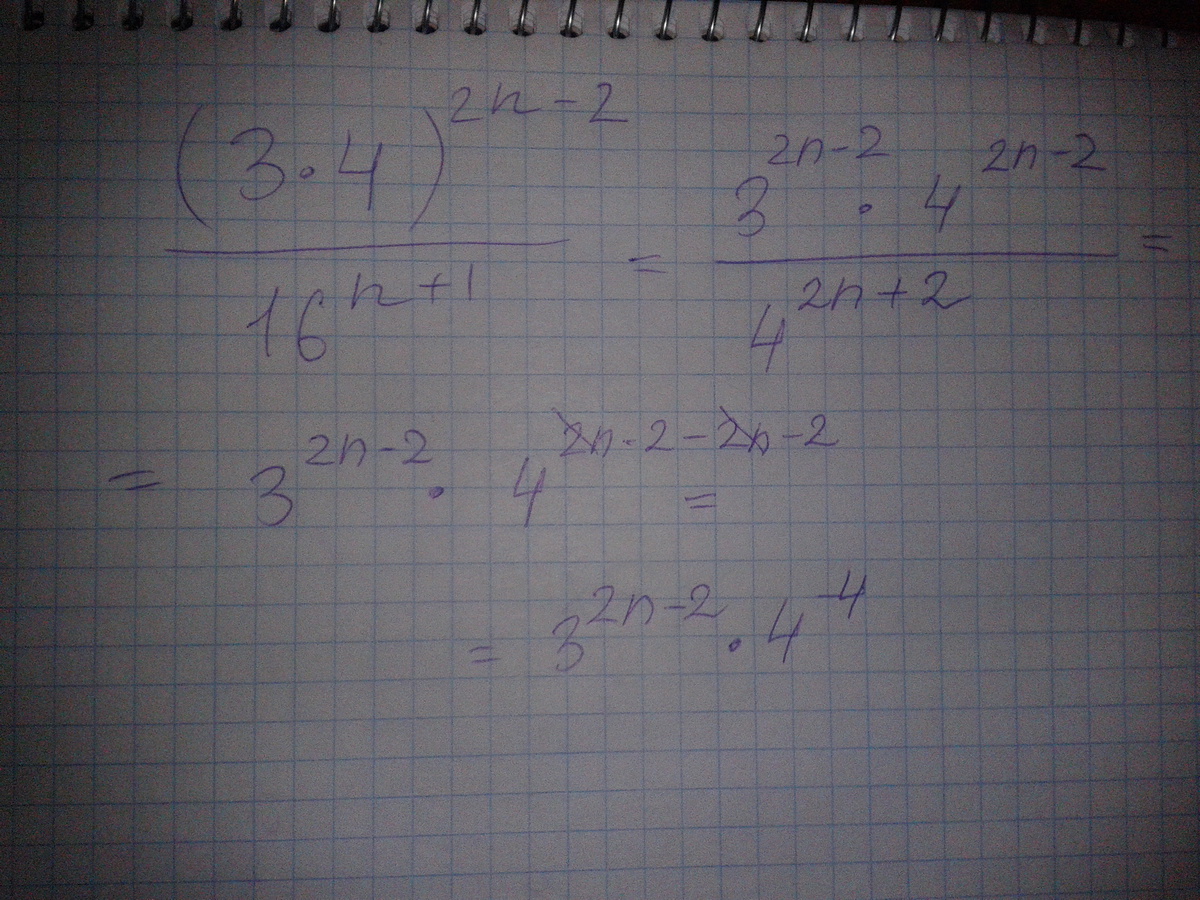 (3·4)^{2n-2} / 16^{n+1} = 3^{2n-2} · 4^{2n-2} / 4^{2n+2} =
= 3^{2n-2} · 4^{2n-2-2n-2} =
= 3^{2n-2} · 4^{-4}